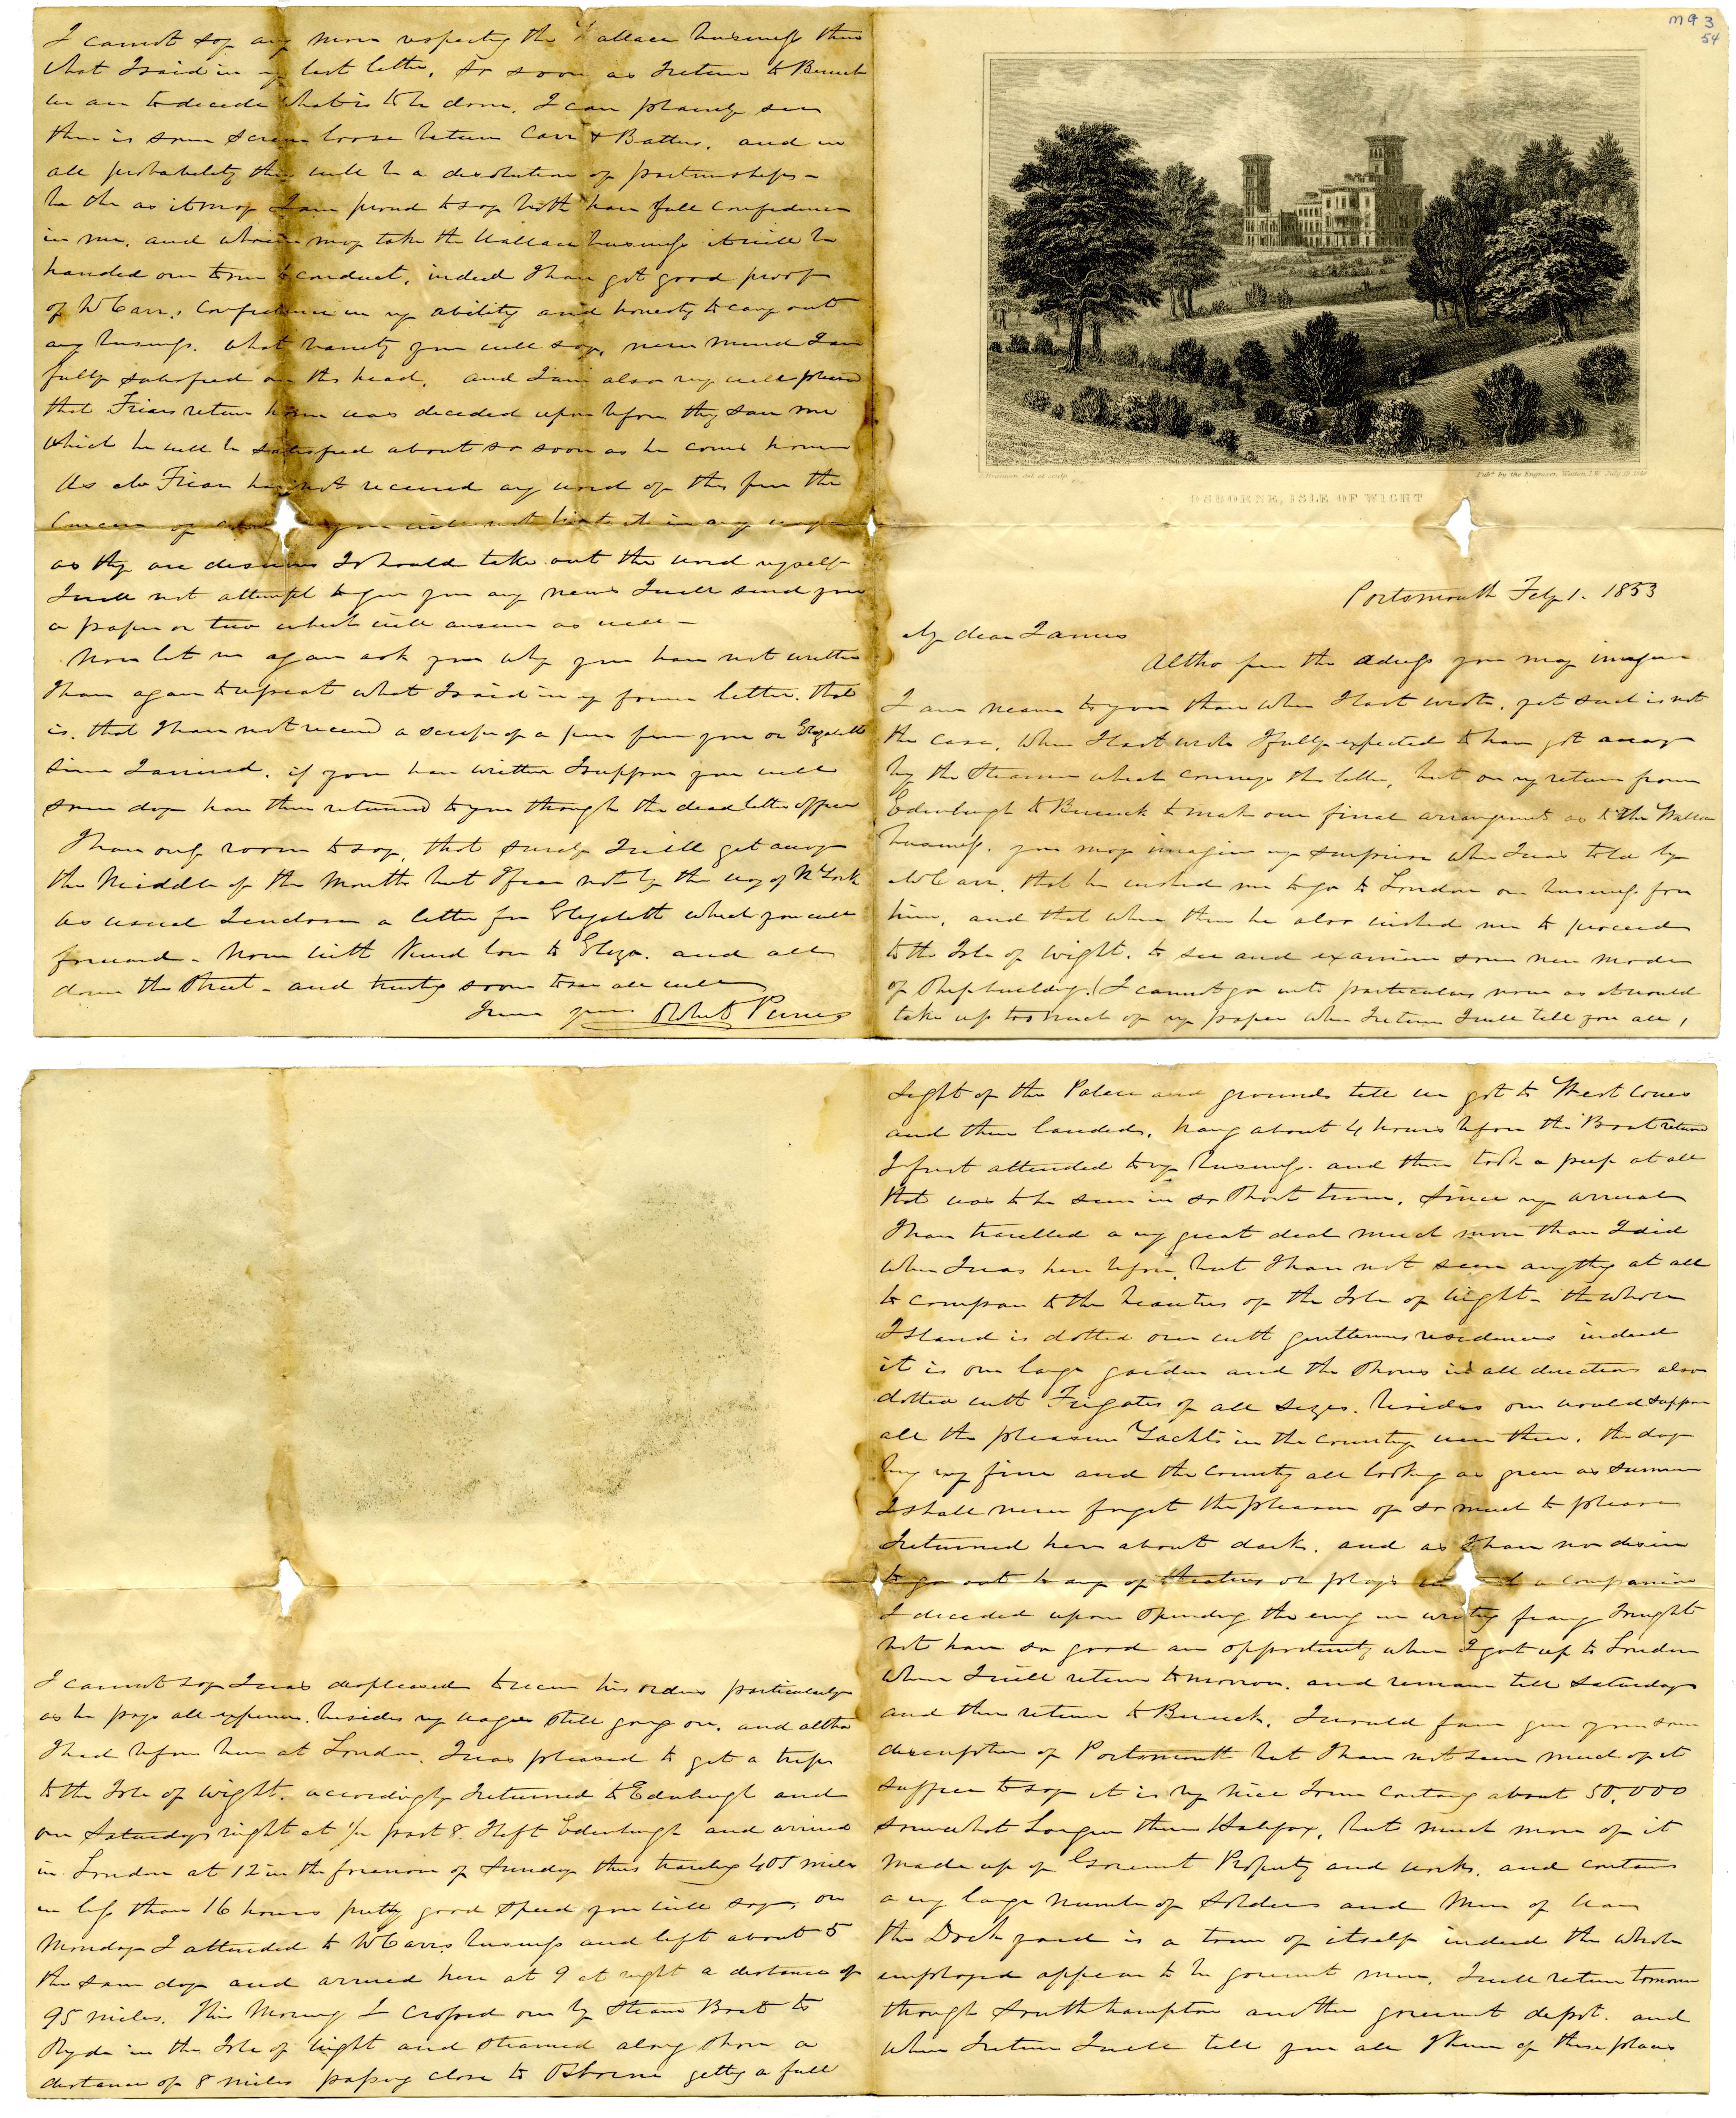 m93
54
Pubd. by the Engraver, Weston, I.W. July
OSBORNE, ISLE OF WIGHT
Portsmouth Feby 1. 1853
My dear James
Altho from the adress you may imagine
I am nearer to you than when I last wrote, yet such is not
the case, when I last wrote I fully expected to have got away
by the Steamer which conveys this letter, but on my return from
Edinburgh to Berwick to make our final arrangements as to the Wallace
business. you may imagine my surprise when I was told by
Mr Carr. that he wished me to go to London on business for
him, and that when there he also wished me to proceed
to the Isle of wight. to see and examine some new mode
of Shipbuilding. (I cannot go into particulars now as it would
take up too much of my paper when I return I will tell you all,
I cannot say I was displeased to receive his orders particularly
as he pays all expences. besides my wages still going on. and altho
I had before been at London. I was pleased to get a trip
to the Isle of wight. accordingly I returned to Edinburgh and
on Saturday night at ½ past 8. I left Edinburgh and arrived
in London at 12 in the forenoon of Sunday thus traveling 405 miles
in less than 16 hours pretty good speed you will say, on
Monday I attended to Mr Carrs business and left about 5
the same day and arrived here at 9 at night a distance of
95 miles. This Morning I crossed over by Steam Boat to
Ryde in the Isle of wight and steamed along shore a
distance of 8 miles passing close to Osborne getting a full
sight of the Palace and grounds till we got to West Cowes
and then landed, having about 4 hours before the Boat returned
I first attended to my business. and then took a peep at all
that was to be seen in so short time. Since my arrival
I have travelled a very great deal much more than I did
when I was here before, but I have not seen anything at all
to compare to the beauties of the Isle of Wight - the whole
Island is dotted over with gentlemens residences indeed
it is one large garden and the shores in all directions also
dotted with Frigates of all sizes. besides one would suppose
all the pleasure Yachts in the country were there. the day
being very fine and the country all looking as green as summer
I shall never forget the pleasure of so much to please
I returned here about dark. and as I have no desire
to go out to any of theatres or plays a companion
I decided upon spending the eveng in writing fearing I might
not have so good an opportunity when I got up to London
when I will return tomorrow. and remain till Saturday
and then return to Berwick. I would fain give you some
description of Portsmouth but I have not seen much of it
suffice to say it is very nice Town containg about 50,000
somewhat Longer than Halifax, but much more of it
made up of Goverment Property and works. and contains
a very large number of Soldiers and Men of War
the Dock yard is a town of itself indeed the whole
employed appear to be goverment men. I will return tomorrow
though Southhampton another goverment depot. and
when I return I will tell you all I know of these places
I cannot say any more respecting the Wallace business than
what I said in my last letter. So soon as I return to Berwick
we are to decide what is to be done. I can plainly see
there is some Screw loose between Carr & Battens. and in
all probability there will be a disolution of partnerships -
be the as it may I am proud to say both have full confidence
in me, and whoever may take the Wallace business it will be
handed over to me to conduct, indeed I have got good proof
of Mr Carrs Confidence in my ability and honesty to carry out
any business. What vanity you will say, never mind I am
fully satisfied on this head. and I am also very well pleased
that Friars return home was decided upon before they saw me
which he will be satisfied about so soon as he comes home
As Mr Friar has not received any word of this from the
Concern of you will not hint it in any way
as they are desirous I should take out the word myself
I will not attempt to give you any news I will send you
a paper or two which will answer as well -
Now let me again ask you why you have not written
I have again to repeat what I said in my former letter. that
is, that I have not received a scrape of a pen from you or Elizabeth
since I arrived. if you have written I suppose you will
some day have them returned to you through the dead letter office
I have only room to say, that surely I will get away
the Middle of the Month but I fear not by the way of N York
As usual I enclose a letter for Elizabeth which you will
forward - Now with Kind love to Eliza. and all
down the Street - and trusting soon to see all well
I am yours Robert Purves